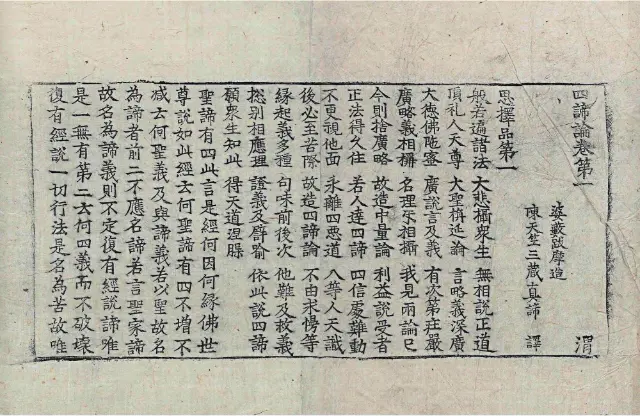 四諦論卷第一 渭
婆藪跋摩造
陳天竺三藏真諦 譯
思擇品第一
般若遍諸法 大悲攝衆生 無相說正道
頂礼人天尊 大聖栴延論 言略義深廣
大德佛陁蜜 廣說言及義 有次第莊嚴
廣略義相稱 名理互相攝 我見兩論已
今則捨廣略 故造中量論 利益說受者
正法得久住 若人達四諦 四信處難動
不更視他面 永離四惡道 八等人天識
後必至苦際 故造四諦論 不由求慢等
緣起義多種 句味前後次 他難及救義
捴別相應理 證義及譬喻 依此說四諦
願衆生知此 得天道涅槃
聖諦有四此言是經何因何緣佛世
尊說如此經云何聖諦有四不增不
减云何聖義及與諦義若以聖故名
為諦者前二不應名諦若言聖家諦
故名為諦義則不定復有經說諦唯
是一無有第二云何四義而不破壞
復有經說一切行法是名為苦故唯